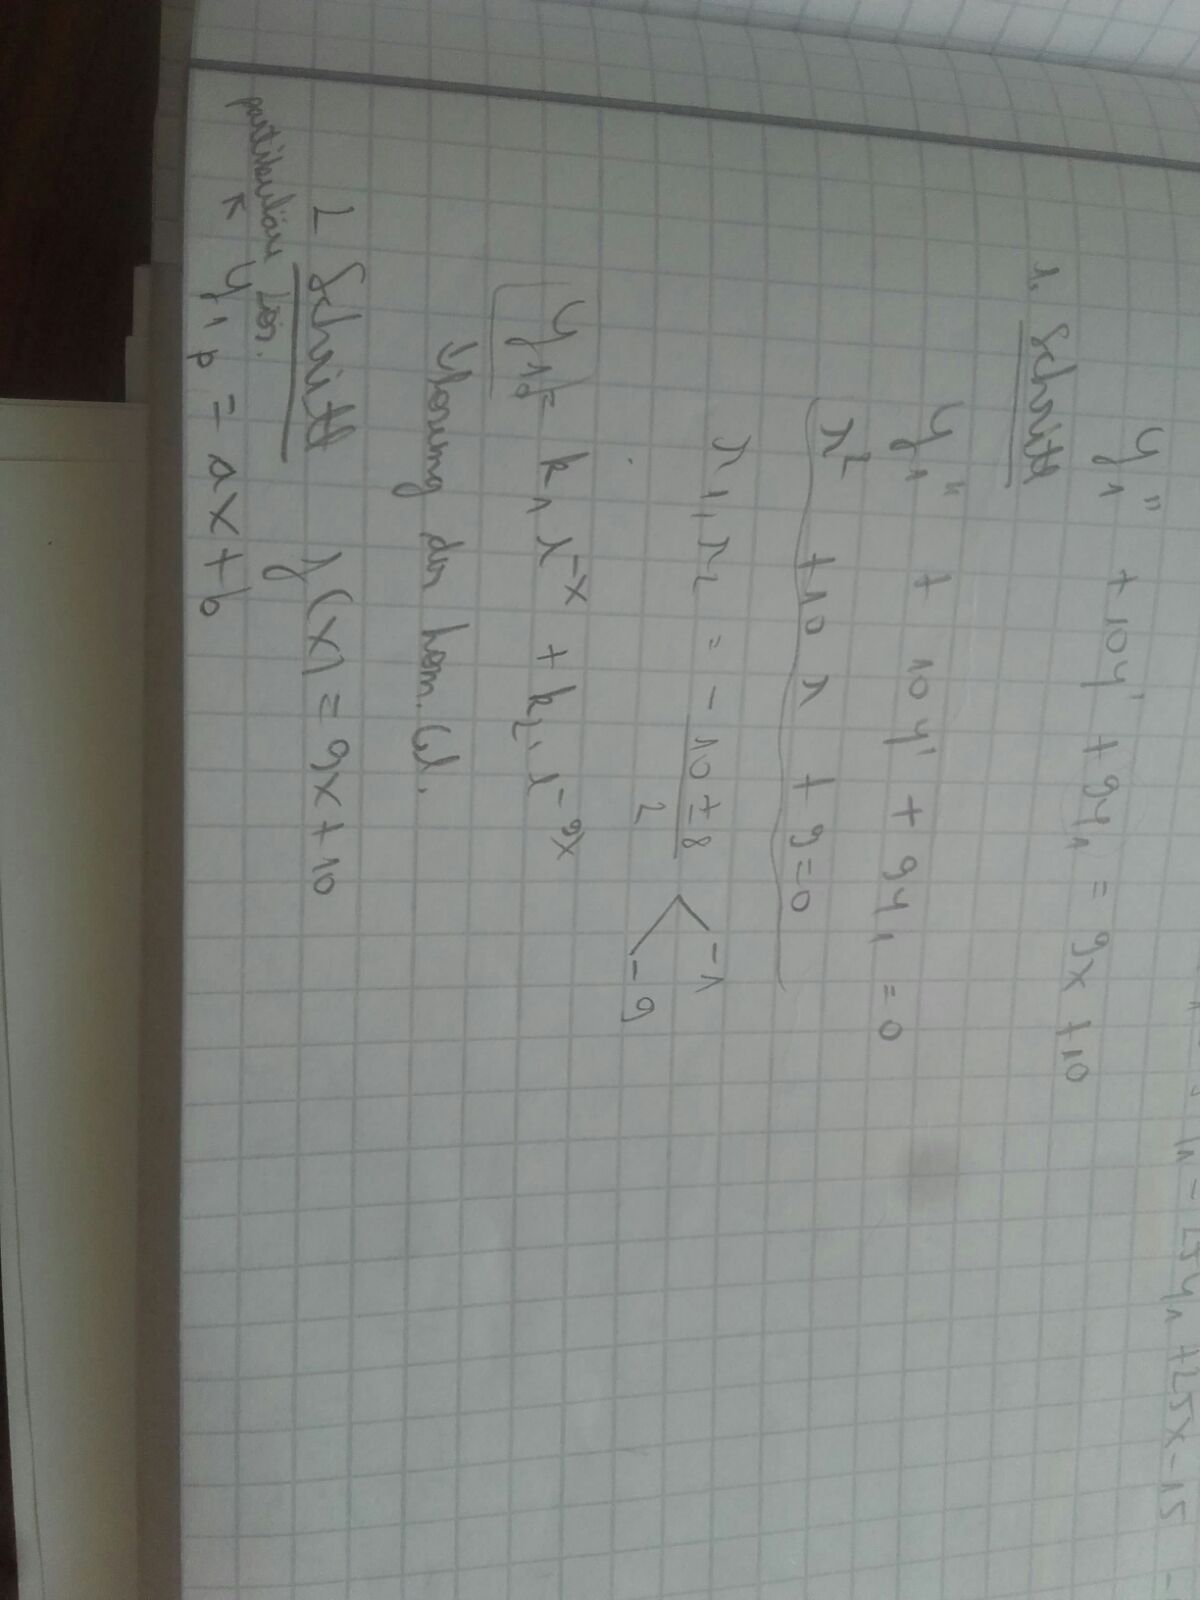 y₁'' + 10y' + 9y₁ = 9x + 10
1. Schritt
y₁'' + 10y' + 9y₁ = 0
r² + 10r + 9 = 0
r₁, r₂ = -10 ± 8 / 2 < -1 -9
y₁₀ = k₁ e^-x + k₂ · e^-9x
Lösung der hom. Gl.
2 Schritt f(x) = 9x + 10
partikuläre Lös.
y₁p = ax + b